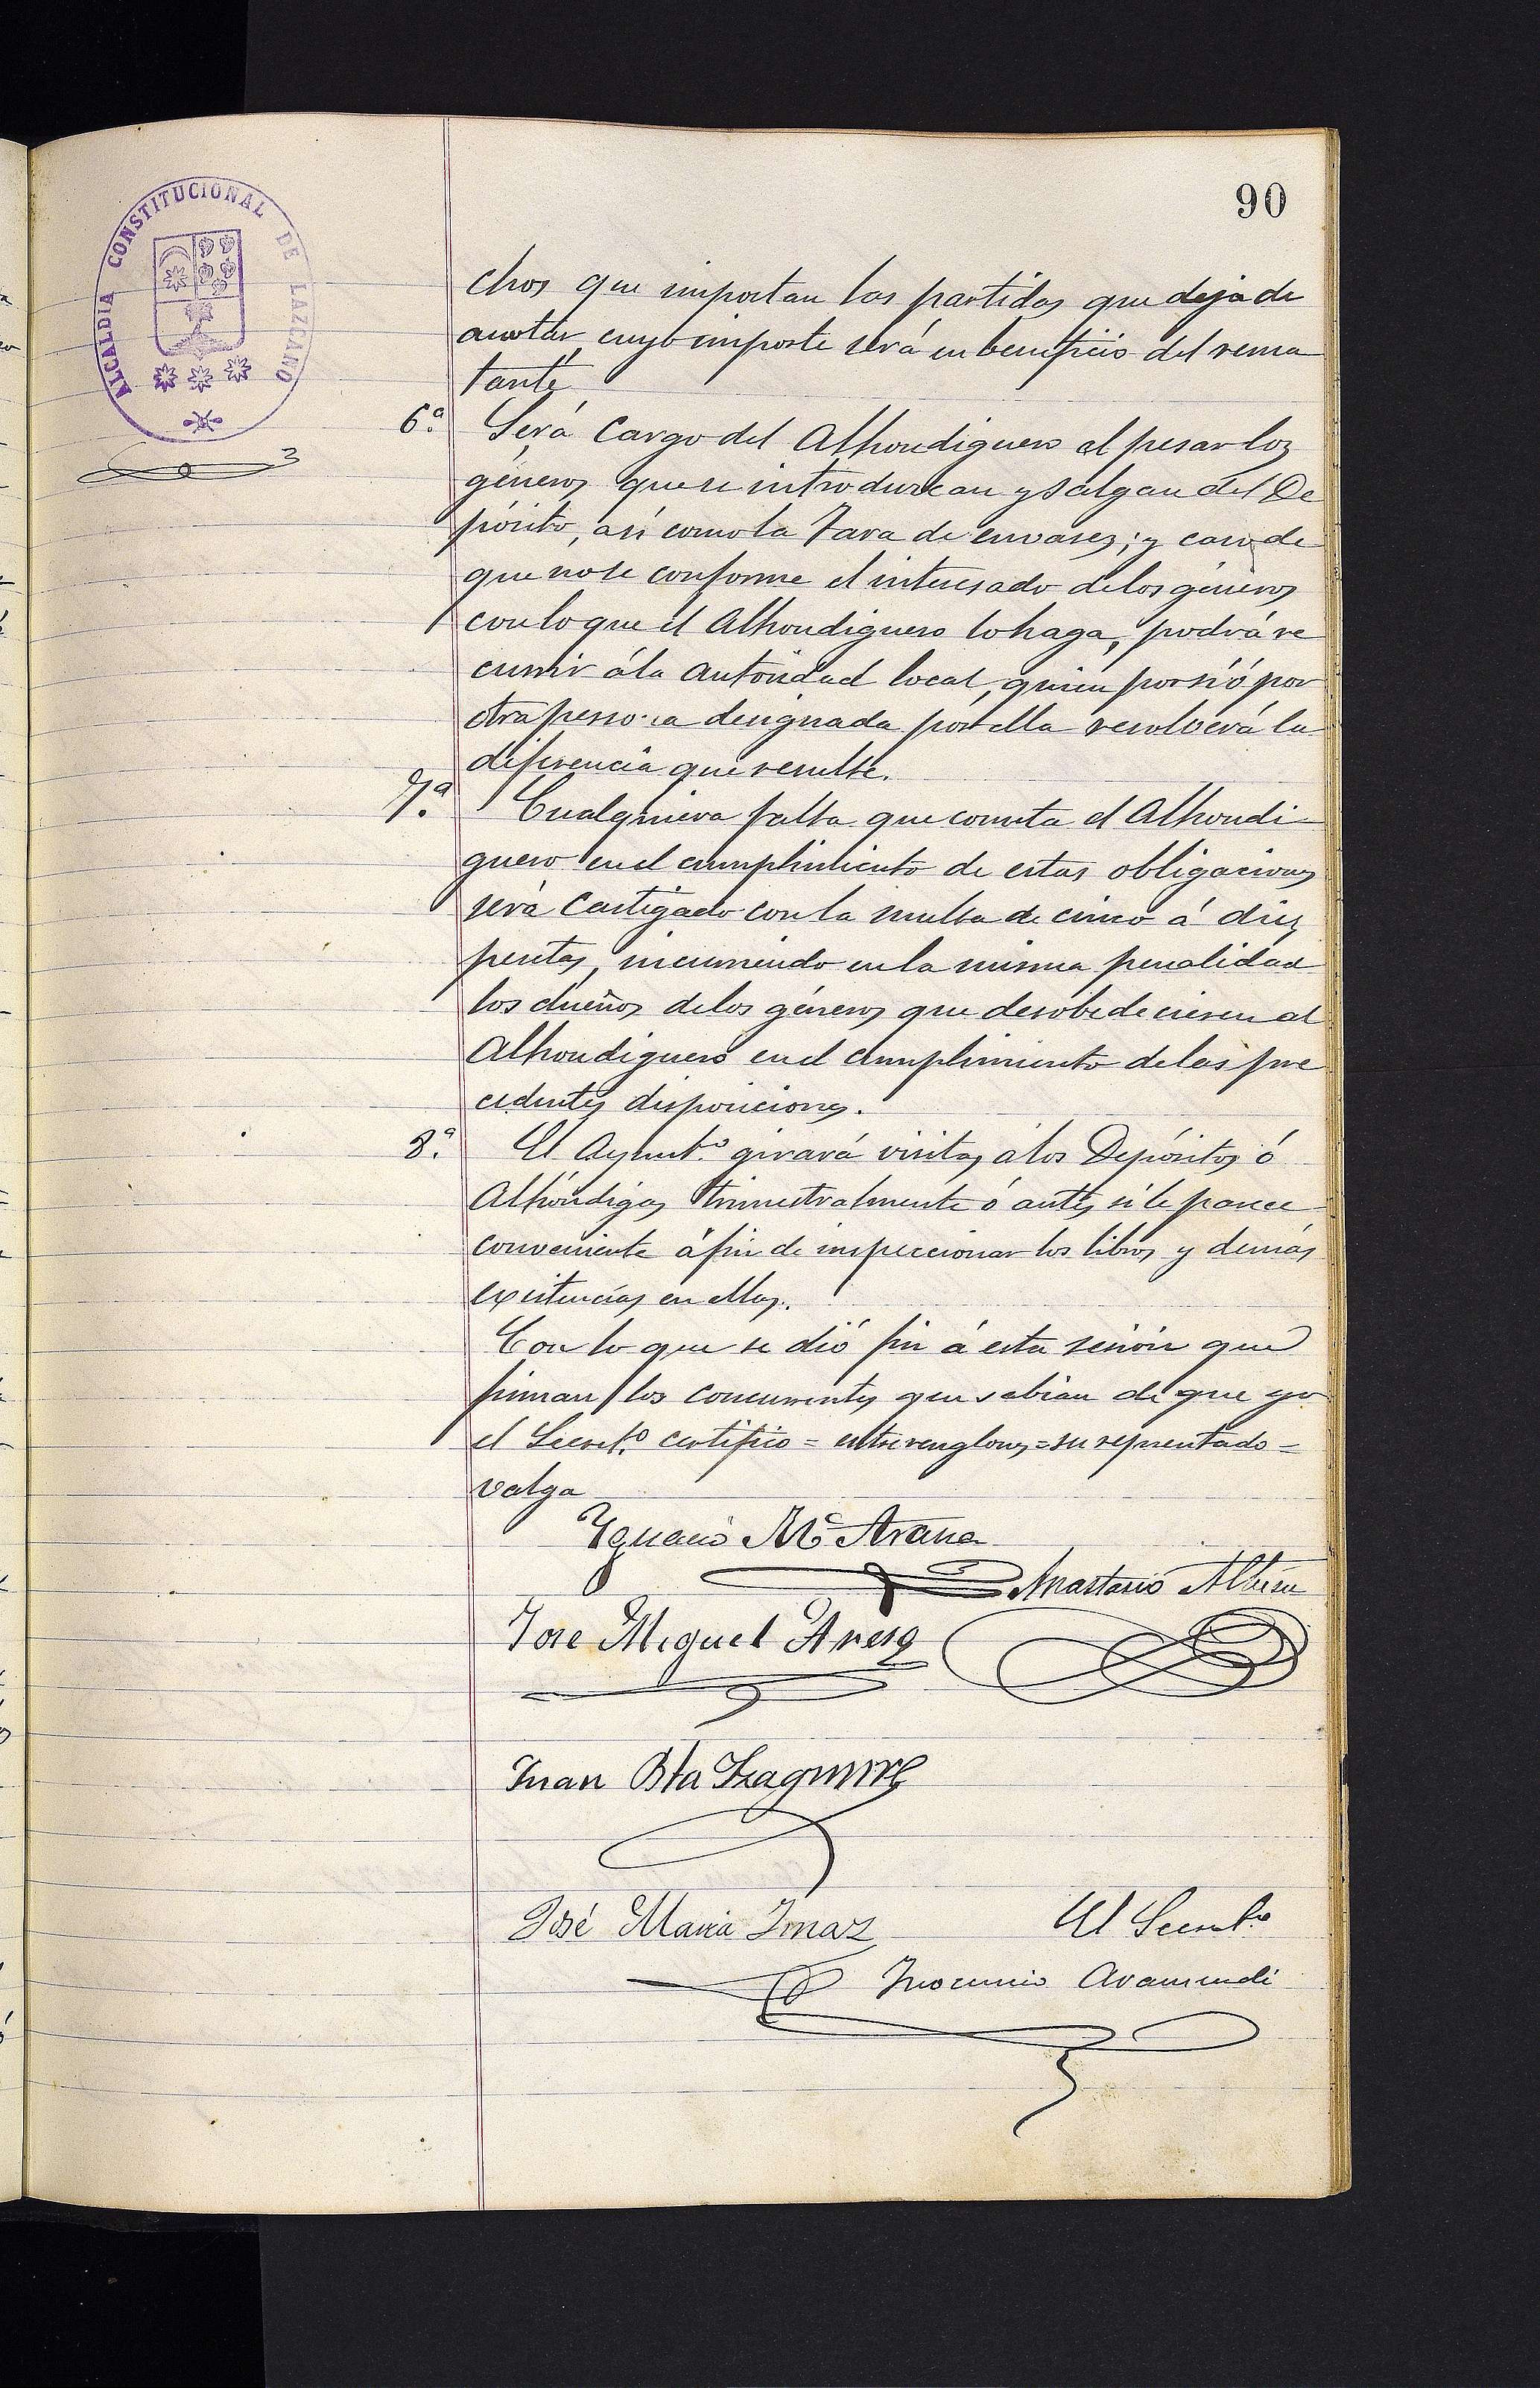 90
ALCALDIA CONSTITUCIONAL DE LAZCANO
chos que importan las partidas que deja de
anotar, cuyo importe será en beneficio del rema
tante
6.ª Será cargo del Alhondiguero el pesar los
géneros que se introduzcan y salgan del De
pósito, así como la Tara de envases; y caso de
que no se conforme el interesado de los géneros
con lo que el Alhondiguero lo haga, podrá re
currir á la autoridad local, quien por sí ó por
otra persona designada por ella resolverá la
diferencia que resulte.
7.ª Cualquiera falta que cometa el Alhondi-
guero en el cumplimiento de estas obligaciones
será castigado con la multa de cinco á diez
pesetas, incurriendo en la misma penalidad
los dueños de los géneros que desobedeciesen al
Alhondiguero en el cumplimiento de las pre
cedentes disposiciones.
8.ª El Ayunt.º girará visitas á los Depósitos ó
Alhóndigas trimestralmente ó antes si le parece
conveniente á fin de inspeccionar los libros y demás
existencias en ellas.
Con lo que se dió fin á esta sesión que
firman los concurrentes que sabian de que yo
el Secret.º certifico = entrerenglones = su representado =
valga
Ygnacio M.ª Arana
Anastasio Albisu
Jose Miguel Arese
Juan Bta Izaguirre
José Maria Imaz
El Secret.º
Inocencio Aramendi